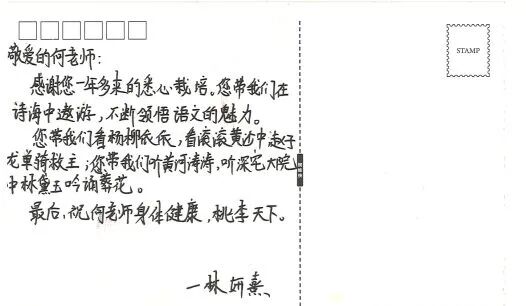 敬爱的何老师：
感谢您一年多来的悉心栽培。您带我们在
诗海中遨游，不断领悟语文的魅力。
您带我们看杨柳依依，看滚滚黄沙中赵子
龙单骑救主；您带我们听黄河涛涛，听深宅大院
中林黛玉吟诵葬花。
最后，祝何老师身体健康，桃李天下。
—林妍熹
STAMP